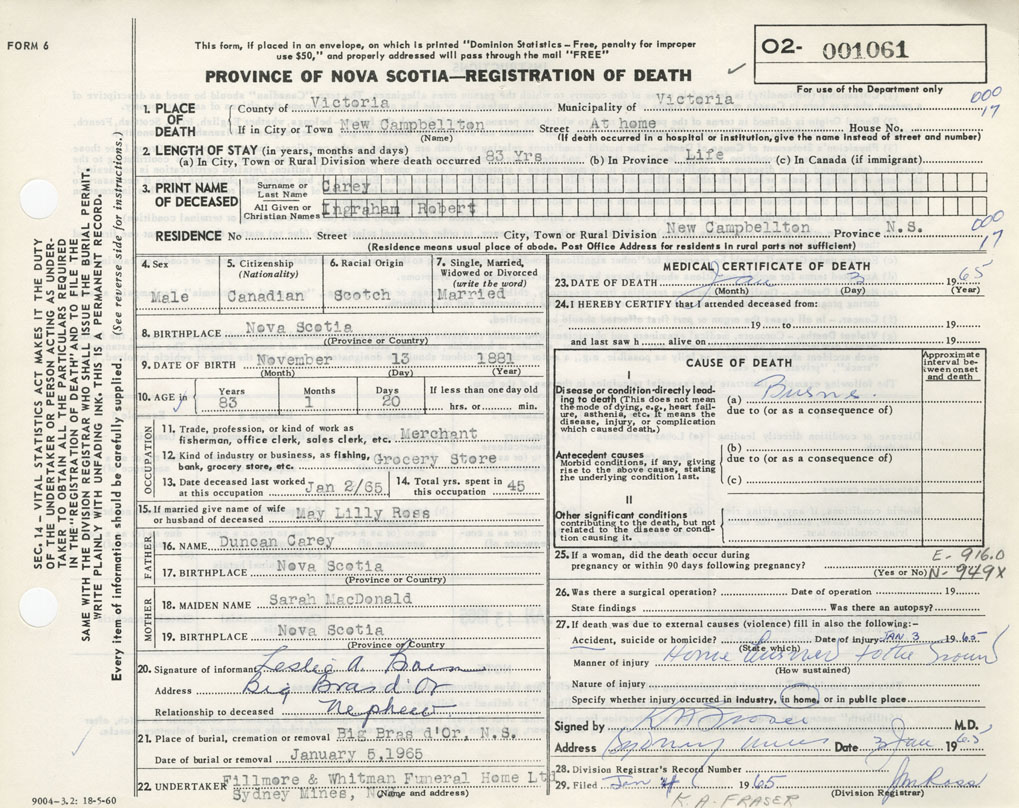 FORM 6
This form, if placed in an envelope, on which is printed "Dominion Statistics – Free, penalty for improper
use $50," and properly addressed will pass through the mail "FREE"
O2- 001061
PROVINCE OF NOVA SCOTIA—REGISTRATION OF DEATH
For use of the Department only
000
17
1. PLACE OF DEATH County of Victoria Municipality of Victoria
If in City or Town New Campbellton Street At home House No.
(Name) (If death occurred in a hospital or institution, give the name instead of street and number)
2. LENGTH OF STAY (in years, months and days)
(a) In City, Town or Rural Division where death occurred 83 Yrs (b) In Province Life (c) In Canada (if immigrant)
3. PRINT NAME OF DECEASED Surname or Last Name Carey
All Given or Christian Names Ingraham Robert
RESIDENCE No Street City, Town or Rural Division New Campbellton Province N.S.
000
17
(Residence means usual place of abode. Post Office Address for residents in rural parts not sufficient)
4. Sex 5. Citizenship (Nationality) 6. Racial Origin 7. Single, Married, Widowed or Divorced (write the word)
Male Canadian Scotch Married
8. BIRTHPLACE Nova Scotia
((Province or Country)
9. DATE OF BIRTH November 13 1881
(Month) (Day) (Year)
10. AGE in Years Months Days If less than one day old
83 1 20 hrs. or min.
OCCUPATION
11. Trade, profession, or kind of work as
fisherman, office clerk, sales clerk, etc. Merchant
12. Kind of industry or business, as fishing,
bank, grocery store, etc. Grocery Store
13. Date deceased last worked
at this occupation Jan 2/65
14. Total yrs. spent in
this occupation 45
15. If married give name of wife
or husband of deceased May Lilly Ross
FATHER
16. NAME Duncan Carey
17. BIRTHPLACE Nova Scotia
(Province or Country)
MOTHER
18. MAIDEN NAME Sarah MacDonald
19. BIRTHPLACE Nova Scotia
(Province or Country)
20. Signature of informant Leslie A
Address Big Bras d'Or
Relationship to deceased Nephew
21. Place of burial, cremation or removal Big Bras d'Or, N.S.
Date of burial or removal January 5, 1965
22. UNDERTAKER Fillmore & Whitman Funeral Home Ltd
Sydney Mines, N.S.
(Name and address)
MEDICAL CERTIFICATE OF DEATH
23. DATE OF DEATH Jan 3 1965
(Month) (Day) (Year)
24. I HEREBY CERTIFY that I attended deceased from:
19 to 19
and last saw h alive on 19
CAUSE OF DEATH
Approximate interval between onset and death
I
Disease or condition directly leading to death (This does not mean
the mode of dying, e.g., heart failure, asthenia, etc. It means the
disease, injury, or complication
which caused death.)
(a) Burns.
due to (or as a consequence of)
Antecedent causes
Morbid conditions, if any, giving
rise to the above cause, stating
the underlying condition last.
(b)
due to (or as a consequence of)
(c)
II
Other significant conditions
contributing to the death, but not
related to the disease or condition causing it.
25. If a woman, did the death occur during
pregnancy or within 90 days following pregnancy?
(Yes or No)
E - 916.0
N - 949X
26. Was there a surgical operation? Date of operation 19
State findings Was there an autopsy?
27. If death was due to external causes (violence) fill in also the following:-
Accident, suicide or homicide? Date of injury JAN 3 1965
(State which)
Manner of injury Home burned to the ground
(How sustained)
Nature of injury
Specify whether injury occurred in industry, in home, or in public place
Signed by K A Fraser M.D.
Address Sydney Mines Date 3 Jan 1965
28. Division Registrar's Record Number
29. Filed Jan 1965 Ross
(Division Registrar)
K. A. FRASER
SEC. 14 – VITAL STATISTICS ACT MAKES IT THE DUTY
OF THE UNDERTAKER OR PERSON ACTING AS UNDERTAKER TO OBTAIN ALL THE PARTICULARS REQUIRED
IN THE "REGISTRATION OF DEATH" AND TO FILE THE
SAME WITH THE DIVISION REGISTRAR WHO SHALL ISSUE THE BURIAL PERMIT.
WRITE PLAINLY WITH UNFADING INK. THIS IS A PERMANENT RECORD.
Every item of information should be carefully supplied. (See reverse side for instructions.)
9004–3.2: 18-5-60